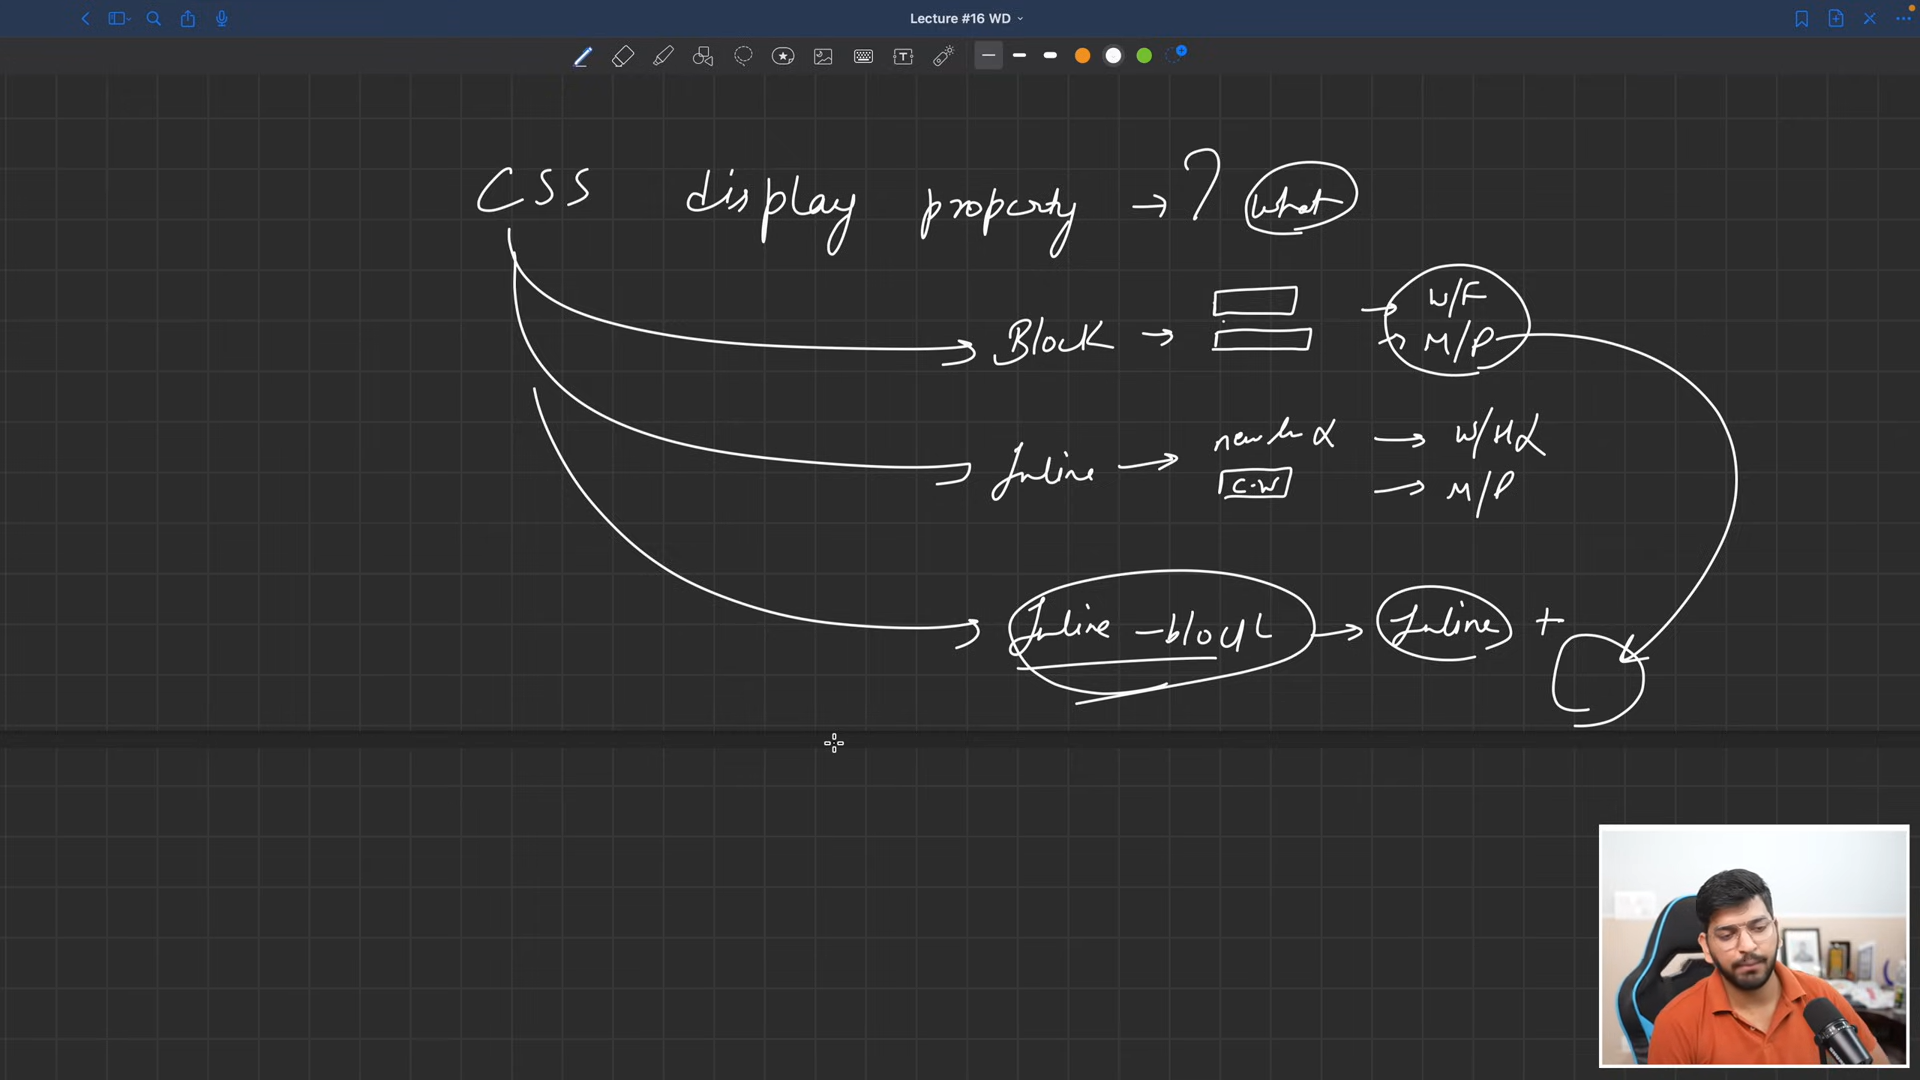 Lecture #16 WD
CSS display property → ? what
Block → → W/H
→ M/P
Inline → new ln → W/H
C.W → M/P
Inline - block → Inline +